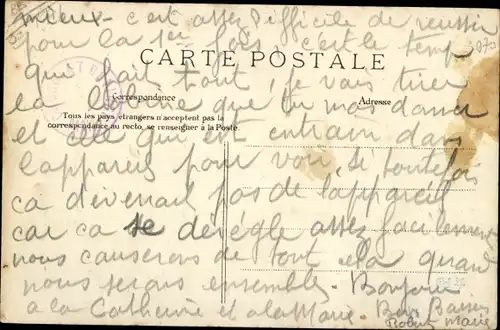 mieux - c'est assez difficile de reussir
pour la 1ere fois, c'est le temp
CARTE POSTALE
qui fait tout, je vais tirer
Correspondance
Adresse
la que tu mas donner
Tous les pays étrangers n'acceptent pas la
correspondance au recto, se renseigner à la Poste.
et celle qui est entrain dans
l'appareil pour voir si toutefois
ca devenait pas de lappareil
car ca se dérégle assez facilement
nous causerons de tout cela quand
nous serons ensembles. Bonjour
a la Catherine et a la Marie. Bons Baisers
Marie